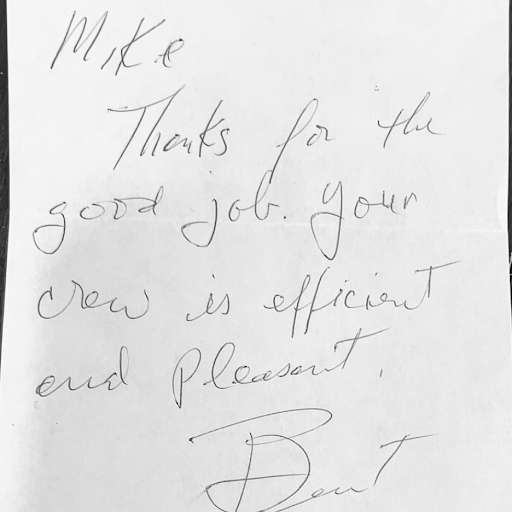 Mike
Thanks for the
good job. Your
crew is efficient
and pleasant.